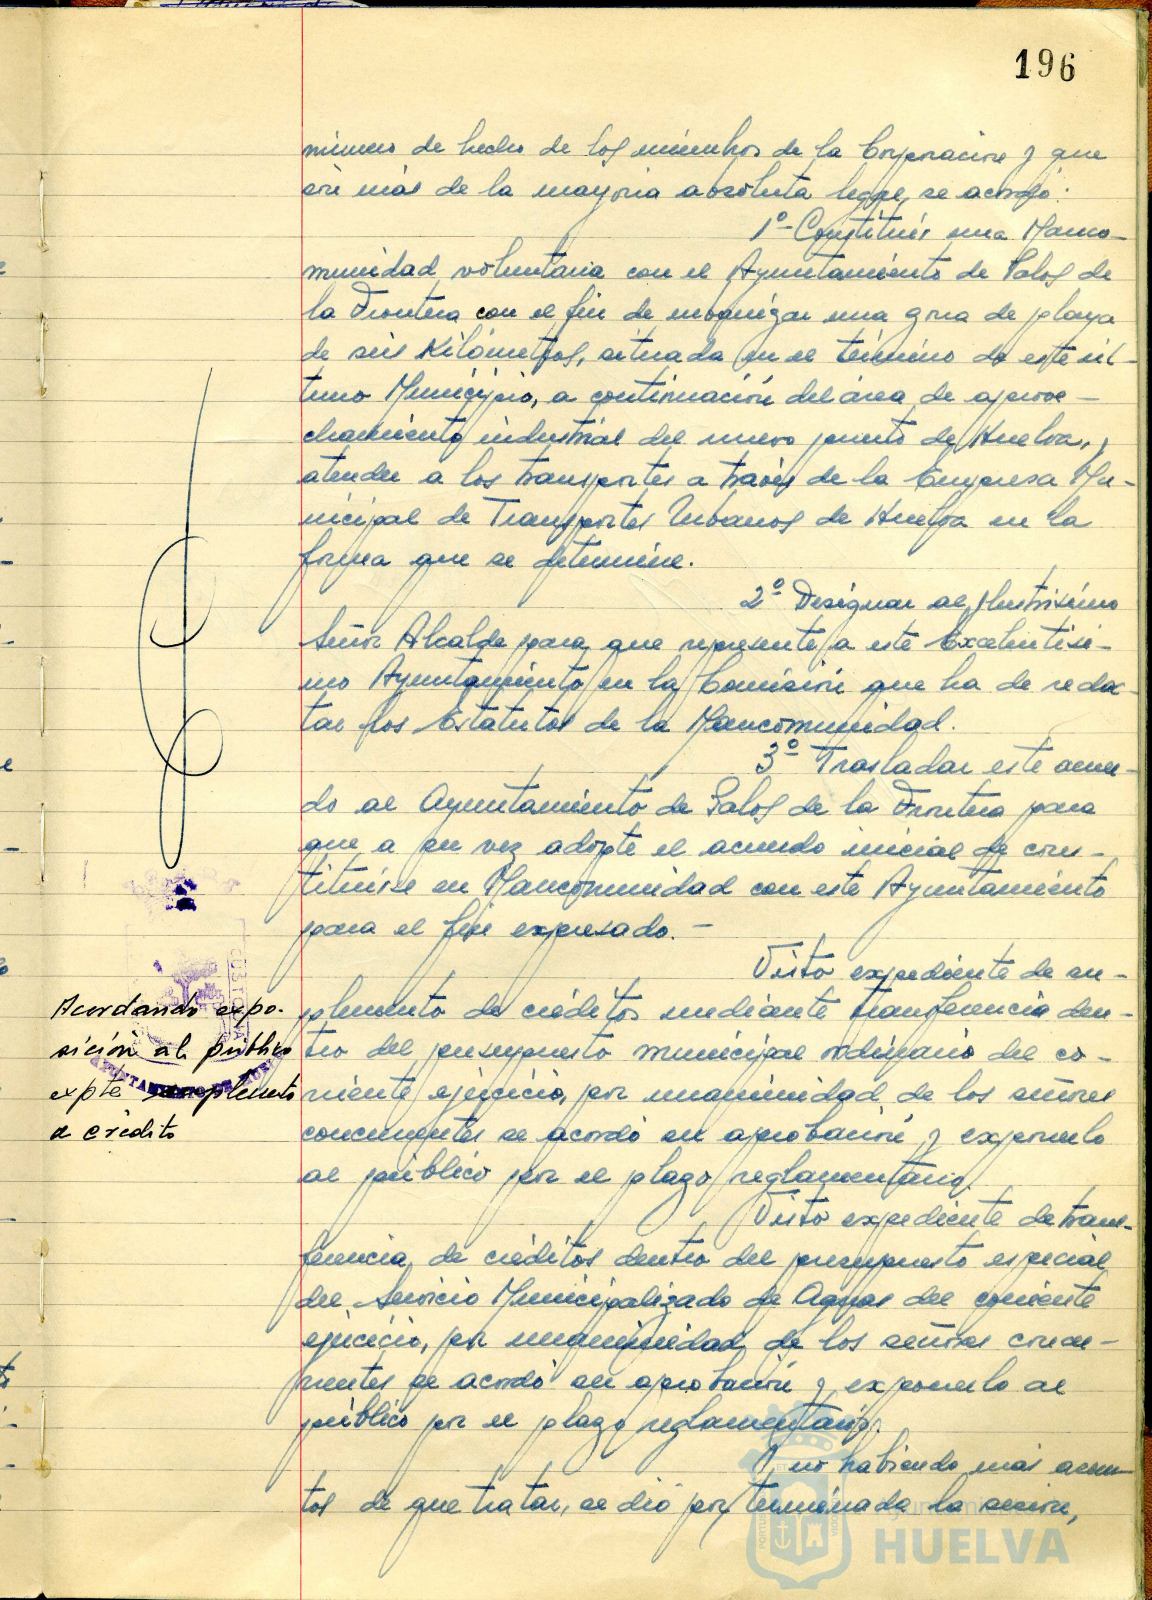 196
número de hecho de los miembros de la Corporación y que
son más de la mayoría absoluta legal, se acordó:
1º- Constituir una Manco-
munidad voluntaria con el Ayuntamiento de Palos de
la Frontera con el fin de urbanizar una zona de playa
de seis Kilómetros, situada en el término de este úl-
timo Municipio, a continuación del área de aprove-
chamiento industrial del nuevo puerto de Huelva, y
atender a los transportes a través de la Empresa Mu-
nicipal de Transportes Urbanos de Huelva en la
forma que se determine.
2º Designar al Ilustrísimo
Señor Alcalde para que represente a este Excelentísi-
mo Ayuntamiento en la Comisión que ha de redac-
tar los Estatutos de la Mancomunidad.
3º Trasladar este acuer-
do al Ayuntamiento de Palos de la Frontera para
que a su vez adopte el acuerdo inicial de cons-
tituirse en Mancomunidad con este Ayuntamiento
para el fin expresado.-
Acordando expo-
sición al público
expte suplemento
a crédito
AYUNTAMIENTO DE HUELVA
Visto expediente de su-
plemento de créditos mediante transferencia den-
tro del presupuesto municipal ordinario del co-
rriente ejercicio, por unanimidad de los señores
concurrentes se acordó su aprobación y exponerlo
al público por el plazo reglamentario.
Visto expediente de trans-
ferencia de créditos dentro del presupuesto especial
del Servicio Municipalizado de Aguas del corriente
ejercicio, por unanimidad de los señores concu-
rrentes se acordó su aprobación y exponerlo al
público por el plazo reglamentario.
Y no habiendo más asun-
tos de que tratar, se dió por terminada la sesión,
HUELVA